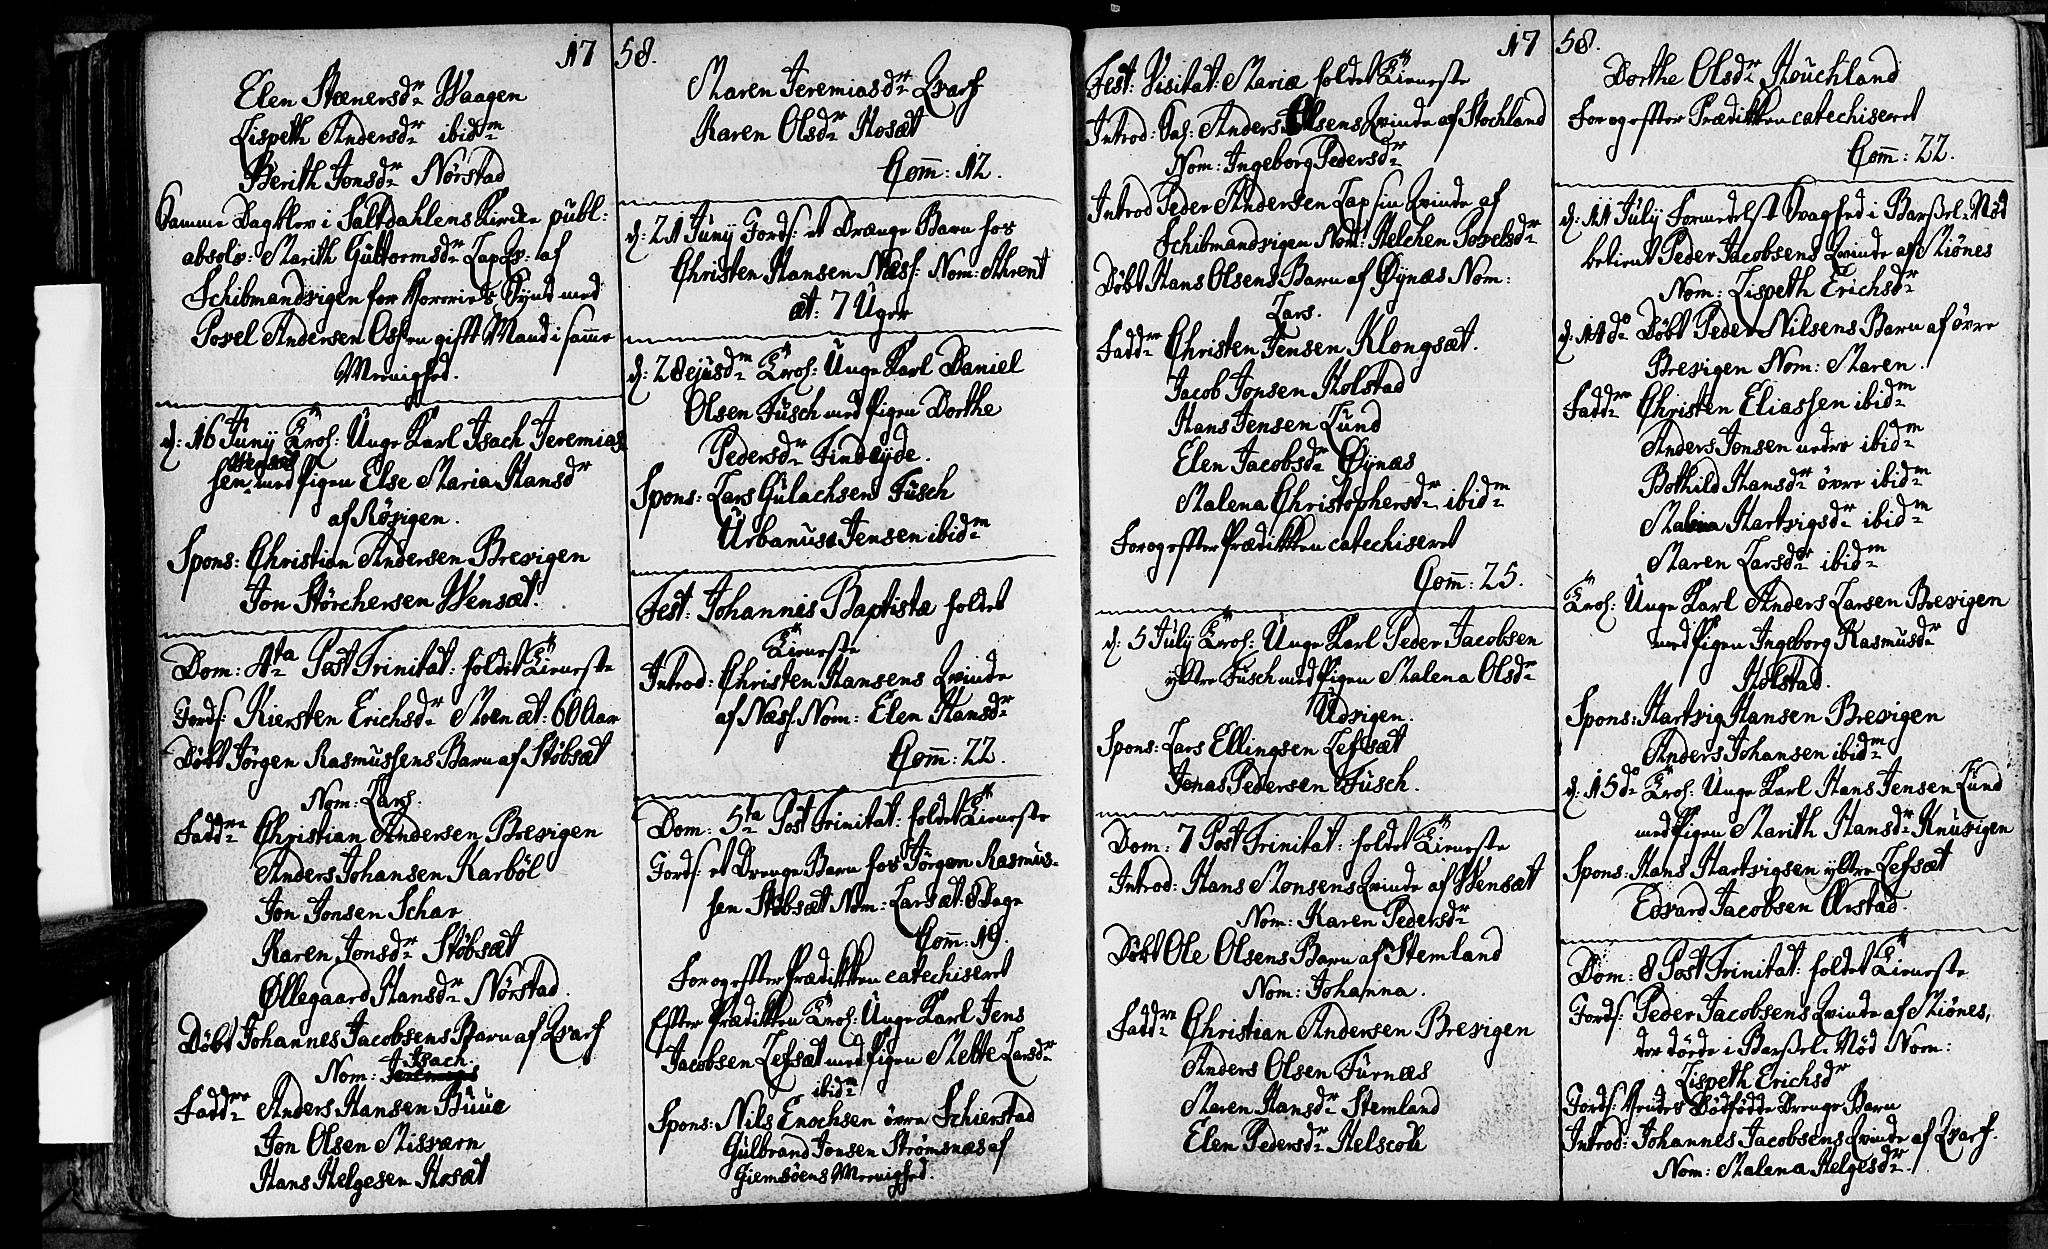 17 58.
Elen Stenersdr Waagen
Lispeth Andersdr ibidm
Berith Jonsdr Nörstad
Samme Dag blev i Saltdahlens Kirke publ:
absolv: Marith Guttormsdr Lapqv: af
Schibmandvigen for Horeriets Synd med
Povel Andersen Osten gift Mand i samme
Menighed.
d: 16 Junij Trol: Unge Karl Isach Jeremias
sen Wensæt med Pigen Else Maria Hansdr
af Rövigen.
Spons: Christian Andersen Brevigen
Jon Störchersen Wensæt.
Dom: 4ta Post Trinitat: holdet Tieneste
Jords: Kiersten Erichsdr Moen æt: 60 Aar
Döbt Jörgen Rasmussens Barn af Stöbsæt
Nom: Lars.
Faddre Christian Andersen Brevigen
Anders Johansen Karböl
Jon Jonsen Schar
Karen Jonsdr Stöbsæt
Ollegaard Hansdr Nörstad.
Döbt Johannes Jacobsens Barn af Qvarf
Nom: Isach.
Faddre Anders Hansen Buue
Jon Olsen Misværn
Hans Helgesen Hosæt
Maren Jeremiasdr Qvarf
Karen Olsdr Hosæt
Com̅: 12.
d: 21 Junij Jords: et Drænge Barn fos
Christen Hansen Næsf: Nom: Ahrent
æt: 7 Uger
d: 28 ejusdm Trol: Unge Karl Daniel
Olsen Fusch med Pigen Dorthe
Pedersdr Findeyde.
Spons: Lars Gulachsen Fusch
Urbanus Jensen ibidm
Fest: Johannis Baptistæ holdet
Tieneste
Introd: Christen Hansens Qvinde
af Næsf. Nom: Elen Hansdr
Com̅: 22.
Dom: 5ta Post Trinitat: holdet Tieneste
Jords: et Drenge Barn fos Jörgen Rasmus-
sen Stöbsæt Nom: Lars æt: 8 Dage
Com̅: 19.
For og efter Prædikken catechiseret
Efter Prædikken Trol: Unge Karl Jens
Jacobsen Lefsæt med Pigen Mette Larsdr
ibidm
Spons: Nils Enochsen övre Schierstad
Gulbrand Jonsen Strömsnæs af
Giemsöens Menighed.
17 58.
Fest: Visitat: Mariæ holdet Tieneste
Introd: Sal: Anders Olsens Qvinde af Stochland
Nom: Ingeborg Pedersdr
Introd Peder Andersen Lap sin Qvinde af
Schibmandvigen Nom: Helchen Povelsdr
Döbt Hans Olsens Barn af Öynæs Nom:
Lars.
Faddre Christen Jensen Klongsæt.
Jacob Jonsen Holstad
Hans Jensen Lund
Elen Jacobsdr Öynæs
Malena Christophersdr ibidm
For og efter Prædikken catechiseret
Com̅: 25.
d: 5 July Trol: Unge Karl Peder Jacobsen
yttre Fusch med Pigen Malena Olsdr
Udvigen.
Spons: Lars Ellingsen Lefsæt
Jonas Pedersen Fusch.
Dom: 7 Post Trinitat: holdet Tieneste
Introd: Hans Monsens Qvinde af Wensæt
Nom: Karen Pedersdr
Döbt Ole Olsens Barn af Stemland
Nom: Johanna.
Faddre Christian Andersen Brevigen
Anders Olsen Furnæs
Maren Hansdr Stemland
Elen Pedersdr Helscou
Dorthe Olsdr Houchland
For og efter Prædikken catechiseret
Com̅: 22.
d: 11 July formedelst Svaghed i Barßel-Nöd
betient Peder Jacobsens Qvinde af Miönes
Nom: Lispeth Erichsdr
d: 14 do Döbt Peder Nilsens Barn af övre
Brevigen Nom: Maren.
Faddre Christen Eliassen ibidm
Anders Jonsen nedre ibidm
Bothild Hansdr övre ibidm
Malena Hartvigsdr ibidm
Maren Larsdr ibidm
Trol: Unge Karl Anders Larsen Brevigen
med Pigen Ingeborg Rasmusdr
Holstad.
Spons: Hartvig Hansen Brevigen
Anders Johansen ibidm
d: 15 do Trol: Unge Karl Hans Jensen Lund
med Pigen Marith Hansdr Knuvigen
Spons: Hans Hartvigsen yttre Lefsæt
Edvard Jacobsen Arstad.
Dom: 8 Post Trinitat: holdet Tieneste
Jords: Peder Jacobsens Qvinde af Miönes,
der döde i Barßel-Nöd Nom:
Lispeth Erichsdr
Jords: Hendes Dödfödde Drenge Barn
Introd: Johannes Jacobsens Qvinde af Qvarf.
Nom: Malena Helgesdr.